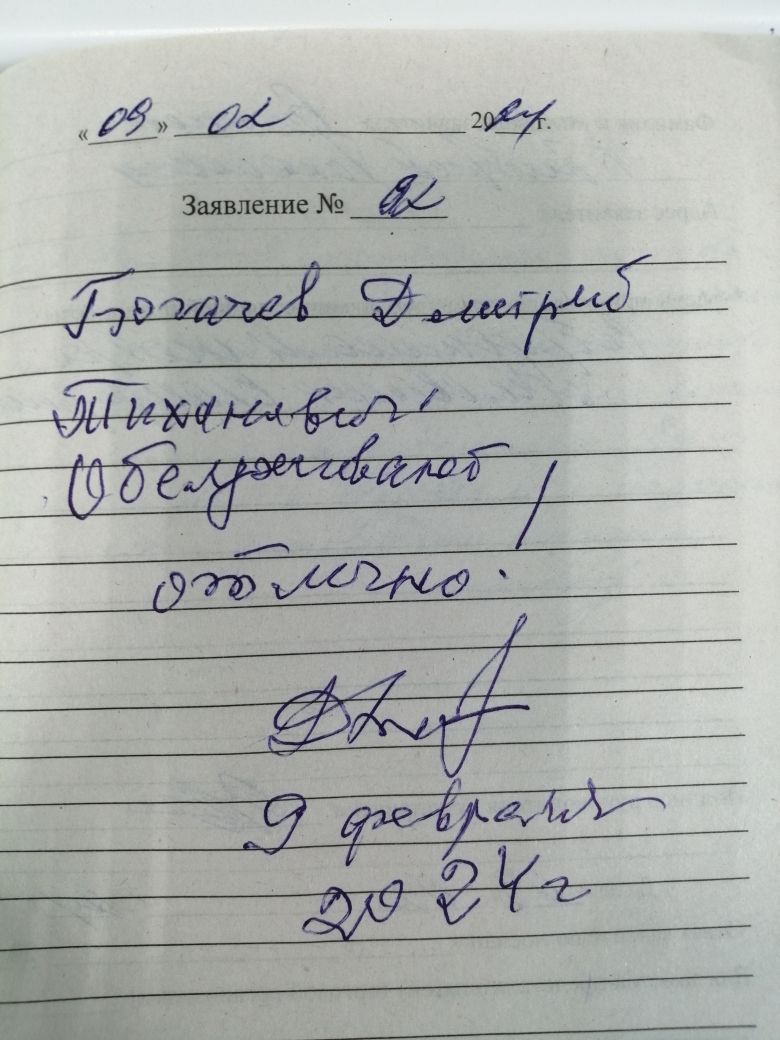 « 09 » 02 2024 г.
Заявление № 02
Богачев Дмитрий
Тиханович
Обслуживают
отлично!
9 февраля
2024г